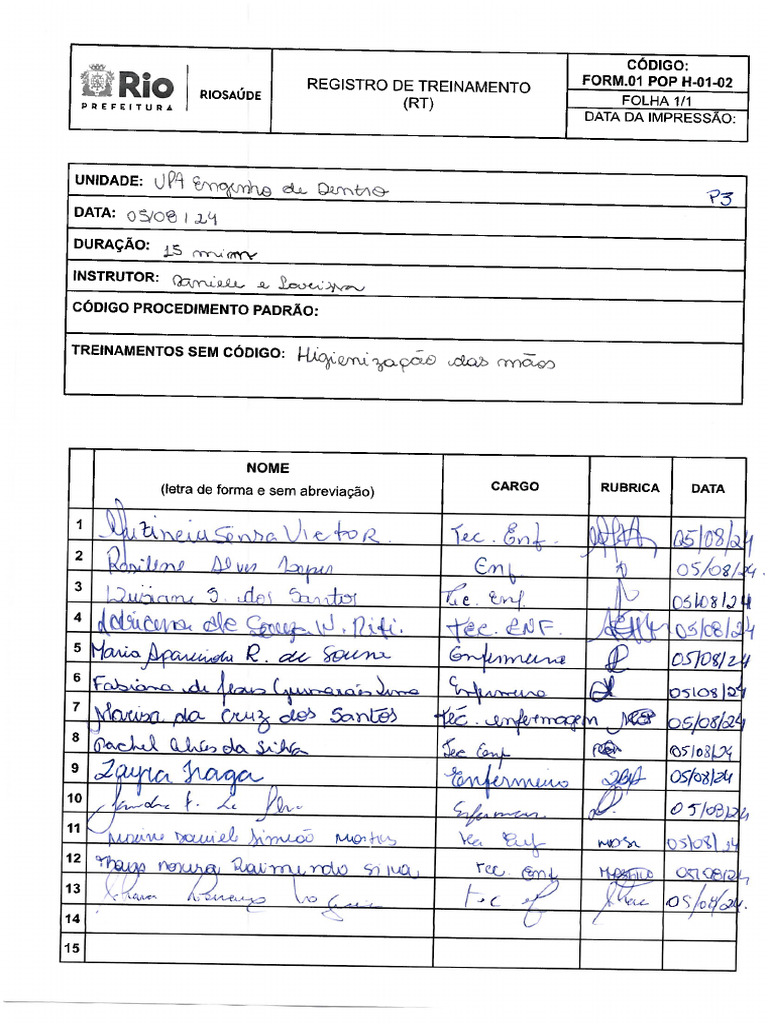 Rio
PREFEITURA
RIOSAÚDE
REGISTRO DE TREINAMENTO
(RT)
CÓDIGO:
FORM.01 POP H-01-02
FOLHA 1/1
DATA DA IMPRESSÃO:
UNIDADE: UPA Engenho de Dentro P3
DATA: 05/08/24
DURAÇÃO: 15 min
INSTRUTOR: Daniele e
CÓDIGO PROCEDIMENTO PADRÃO:
TREINAMENTOS SEM CÓDIGO: Higienização das mãos
NOME
(letra de forma e sem abreviação)
CARGO RUBRICA DATA
1 Victor. Tec. Enf. 05/08/24
2 Rosilene Alves Lopes Enf 05/08/24.
3 S. dos Santos Tec. Enf 05/08/24
4 de Souza Tec. ENF. 05/08/24
5 Maria Aparecida R. de Enfermeira 05/08/24
6 Fabiana de Jesus Guimarães Enfermeira 05/08/24
7 Marisa da Cruz dos Santos Téc. enfermagem 05/08/24
8 Rachel Alves da Silva Tec Enf 05/08/24
9 Zayra Fraga Enfermeiro 05/08/24
10 05/08/24
11 Daniel Simeão Tec Enf 05/08/24
12 Thiago Moura Raimundo Silva Tec. Enf 05/08/24
13 Tec 05/08/24.
14
15